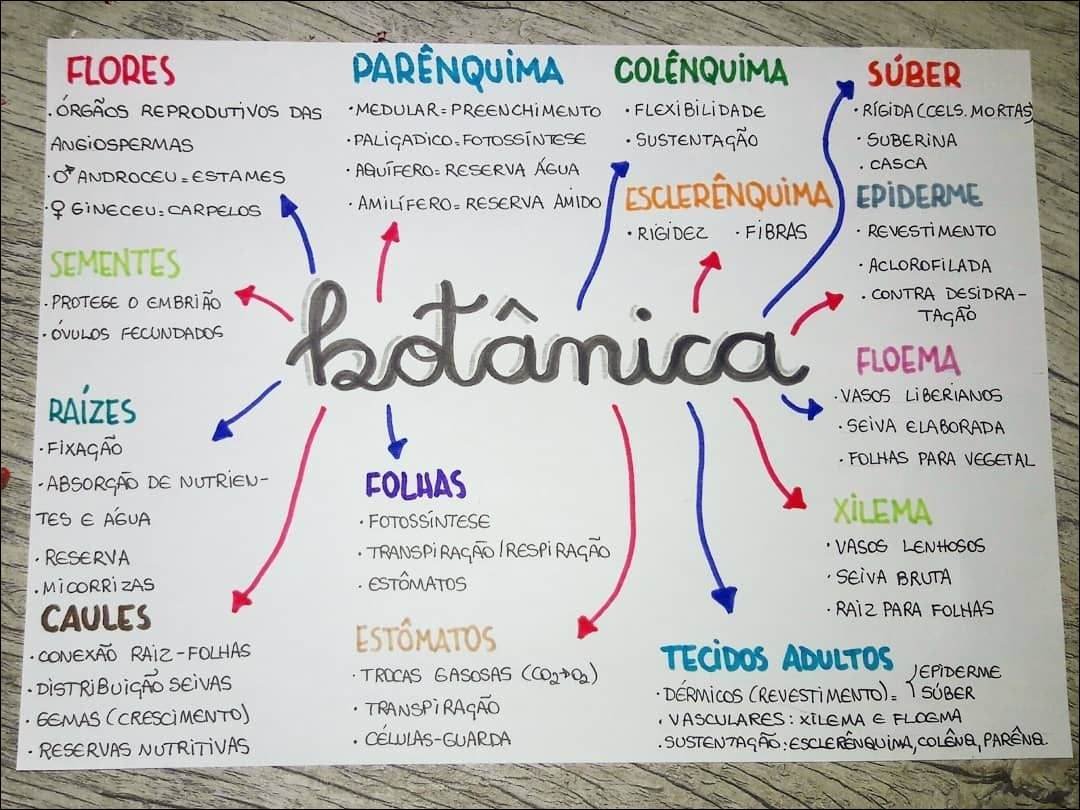 FLORES
· ÓRGÃOS REPRODUTIVOS DAS
ANGIOSPERMAS
· ♂ ANDROCEU = ESTAMES
· ♀ GINECEU = CARPELOS
PARÊNQUIMA
· MEDULAR = PREENCHIMENTO
· PALIÇADICO = FOTOSSÍNTESE
· AQUÍFERO = RESERVA ÁGUA
· AMILÍFERO = RESERVA AMIDO
COLÊNQUIMA
· FLEXIBILIDADE
· SUSTENTAÇÃO
ESCLERÊNQUIMA
· RIGIDEZ · FIBRAS
SÚBER
· RÍGIDA (CELS. MORTAS)
· SUBERINA
· CASCA
EPIDERME
· REVESTIMENTO
· ACLOROFILADA
· CONTRA DESIDRA-
TAÇÃO
SEMENTES
· PROTEGE O EMBRIÃO
· ÓVULOS FECUNDADOS
botânica
FLOEMA
· VASOS LIBERIANOS
· SEIVA ELABORADA
· FOLHAS PARA VEGETAL
RAÍZES
· FIXAÇÃO
· ABSORÇÃO DE NUTRIEN-
TES E ÁGUA
· RESERVA
· MICORRIZAS
FOLHAS
· FOTOSSÍNTESE
· TRANSPIRAÇÃO/RESPIRAÇÃO
· ESTÔMATOS
XILEMA
· VASOS LENHOSOS
· SEIVA BRUTA
· RAIZ PARA FOLHAS
CAULES
· CONEXÃO RAIZ-FOLHAS
· DISTRIBUIÇÃO SEIVAS
· GEMAS (CRESCIMENTO)
· RESERVAS NUTRITIVAS
ESTÔMATOS
· TROCAS GASOSAS (CO₂→O₂)
· TRANSPIRAÇÃO
· CÉLULAS-GUARDA
TECIDOS ADULTOS
· DÉRMICOS (REVESTIMENTO) = { EPIDERME
SÚBER
· VASCULARES: XILEMA E FLOEMA
· SUSTENTAÇÃO: ESCLERÊNQUIMA, COLÊNQ, PARÊNQ.